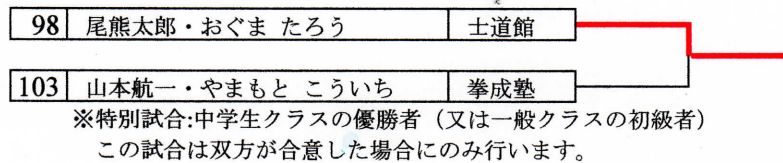 98 尾熊太郎・おぐま たろう 士道館
103 山本航一・やまもと こういち 拳成塾
※特別試合:中学生クラスの優勝者（又は一般クラスの初級者）
この試合は双方が合意した場合にのみ行います。